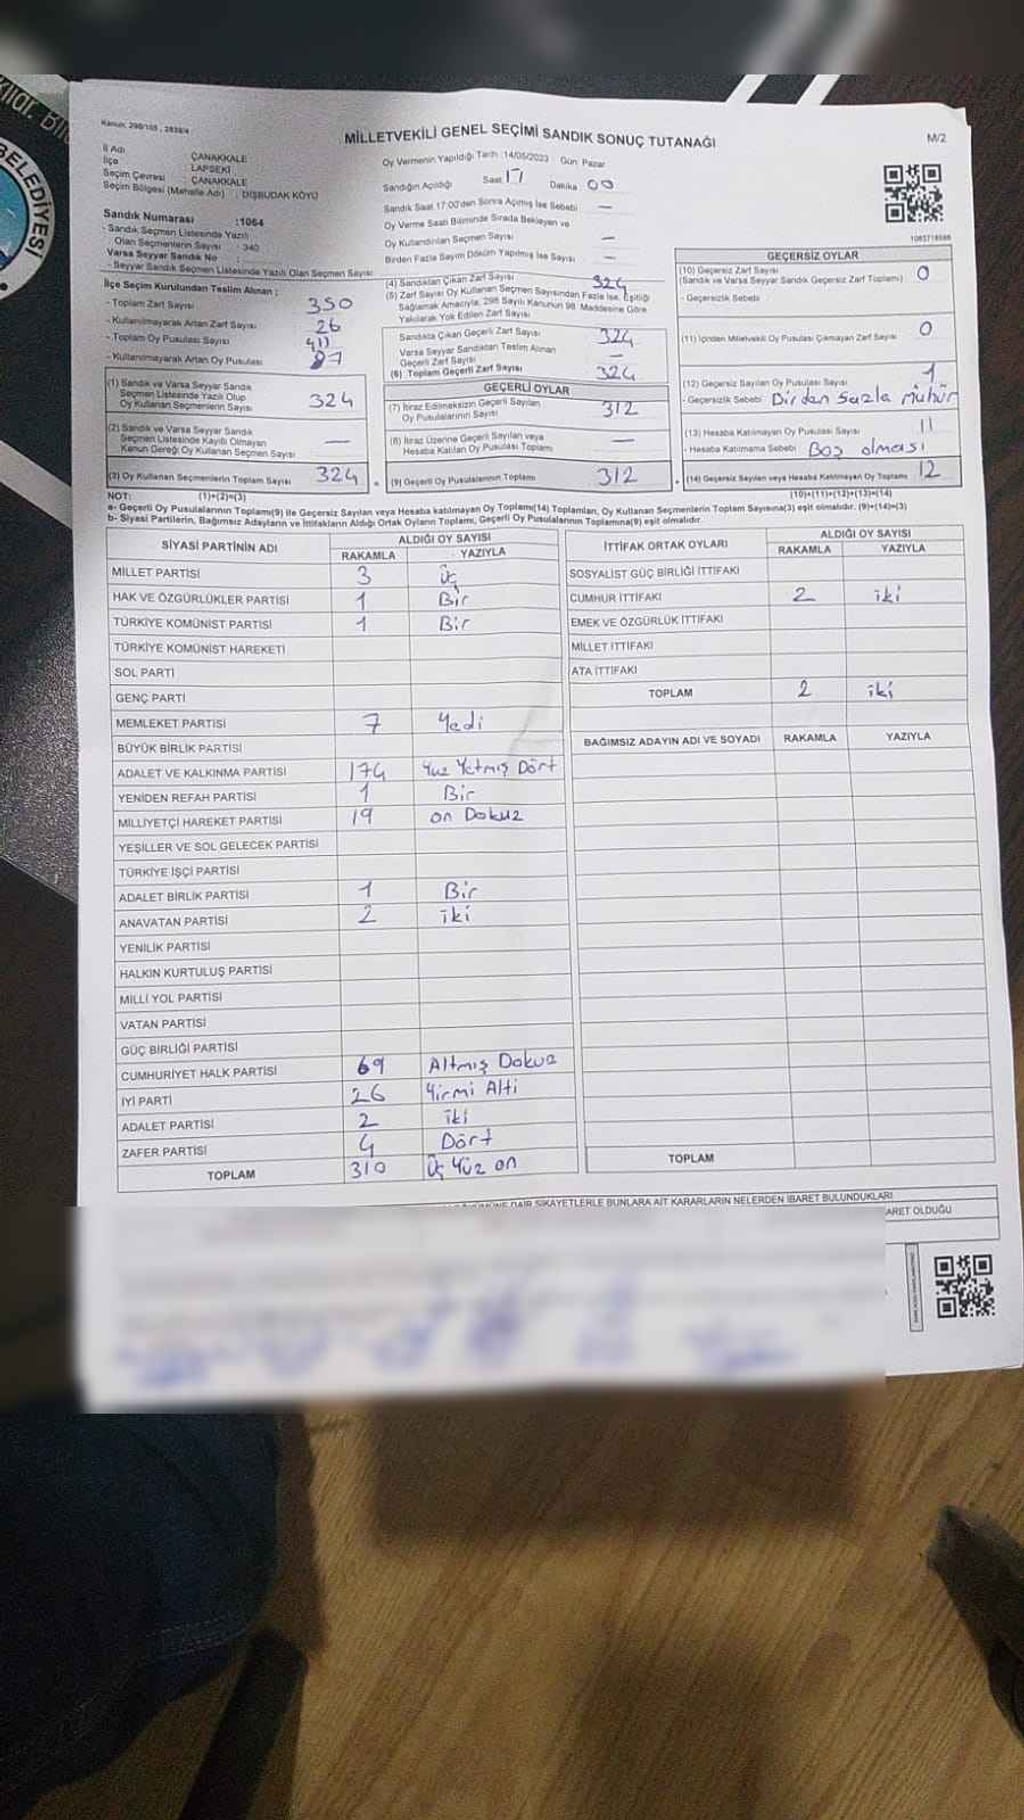 BELEDİYESİ
Kanun: 298/105 , 2839/4
MİLLETVEKİLİ GENEL SEÇİMİ SANDIK SONUÇ TUTANAĞI
M/2
İl Adı : ÇANAKKALE
İlçe : LAPSEKİ
Seçim Çevresi : ÇANAKKALE
Seçim Bölgesi (Mahalle Adı) : DIŞBUDAK KÖYÜ
Sandık Numarası :1064
- Sandık Seçmen Listesinde Yazılı
Olan Seçmenlerin Sayısı : 340
Varsa Seyyar Sandık No :
- Seyyar Sandık Seçmen Listesinde Yazılı Olan Seçmen Sayısı:
Oy Vermenin Yapıldığı Tarih :14/05/2023 Gün: Pazar
Sandığın Açıldığı Saat 17 Dakika 00
Sandık Saat 17:00'den Sonra Açılmış İse Sebebi —
Oy Verme Saati Bitiminde Sırada Bekleyen ve
Oy Kullandırılan Seçmen Sayısı —
Birden Fazla Sayım Döküm Yapılmış İse Sayısı —
İlçe Seçim Kurulundan Teslim Alınan :
- Toplam Zarf Sayısı 350
- Kullanılmayarak Artan Zarf Sayısı 26
- Toplam Oy Pusulası Sayısı 411
- Kullanılmayarak Artan Oy Pusulası 87
(1) Sandık ve Varsa Seyyar Sandık
Seçmen Listesinde Yazılı Olup
Oy Kullanan Seçmenlerin Sayısı 324
(2) Sandık ve Varsa Seyyar Sandık
Seçmen Listesinde Kayıtlı Olmayan
Kanun Gereği Oy Kullanan Seçmen Sayısı —
(3) Oy Kullanan Seçmenlerin Toplam Sayısı 324
(4) Sandıktan Çıkan Zarf Sayısı 324
(5) Zarf Sayısı Oy Kullanan Seçmen Sayısından Fazla İse, Eşitliği
Sağlamak Amacıyla, 298 Sayılı Kanunun 98. Maddesine Göre
Yakılarak Yok Edilen Zarf Sayısı
Sandıkta Çıkan Geçerli Zarf Sayısı 324
Varsa Seyyar Sandıktan Teslim Alınan
Geçerli Zarf Sayısı —
(6) Toplam Geçerli Zarf Sayısı 324
GEÇERLİ OYLAR
(7) İtiraz Edilmeksizin Geçerli Sayılan
Oy Pusulalarının Sayısı 312
(8) İtiraz Üzerine Geçerli Sayılan veya
Hesaba Katılan Oy Pusulası Toplamı —
(9) Geçerli Oy Pusulalarının Toplamı 312
1065718588
GEÇERSİZ OYLAR
(10) Geçersiz Zarf Sayısı
(Sandık ve Varsa Seyyar Sandık Geçersiz Zarf Toplamı) 0
- Geçersizlik Sebebi
(11) İçinden Milletvekili Oy Pusulası Çıkmayan Zarf Sayısı 0
(12) Geçersiz Sayılan Oy Pusulası Sayısı 1
- Geçersizlik Sebebi Birden Fazla Mühür
(13) Hesaba Katılmayan Oy Pusulası Sayısı 11
- Hesaba Katılmama Sebebi Boş olması
(14) Geçersiz Sayılan veya Hesaba Katılmayan Oy Toplamı 12
NOT: (1)+(2)=(3)
(10)+(11)+(12)+(13)=(14)
a- Geçerli Oy Pusulalarının Toplamı(9) ile Geçersiz Sayılan veya Hesaba katılmayan Oy Toplamı(14) Toplamları, Oy Kullanan Seçmenlerin Toplam Sayısına(3) eşit olmalıdır. (9)+(14)=(3)
b- Siyasi Partilerin, Bağımsız Adayların ve İttifakların Aldığı Ortak Oyların Toplamı, Geçerli Oy Pusulalarının Toplamına(9) eşit olmalıdır.
SİYASİ PARTİNİN ADI
ALDIĞI OY SAYISI
RAKAMLA YAZIYLA
MİLLET PARTİSİ 3 Üç
HAK VE ÖZGÜRLÜKLER PARTİSİ 1 Bir
TÜRKİYE KOMÜNİST PARTİSİ 1 Bir
TÜRKİYE KOMÜNİST HAREKETİ
SOL PARTİ
GENÇ PARTİ
MEMLEKET PARTİSİ 7 Yedi
BÜYÜK BİRLİK PARTİSİ
ADALET VE KALKINMA PARTİSİ 174 Yüz Yetmiş Dört
YENİDEN REFAH PARTİSİ 1 Bir
MİLLİYETÇİ HAREKET PARTİSİ 19 on Dokuz
YEŞİLLER VE SOL GELECEK PARTİSİ
TÜRKİYE İŞÇİ PARTİSİ
ADALET BİRLİK PARTİSİ 1 Bir
ANAVATAN PARTİSİ 2 iki
YENİLİK PARTİSİ
HALKIN KURTULUŞ PARTİSİ
MİLLİ YOL PARTİSİ
VATAN PARTİSİ
GÜÇ BİRLİĞİ PARTİSİ
CUMHURİYET HALK PARTİSİ 69 Altmış Dokuz
İYİ PARTİ 26 Yirmi Alti
ADALET PARTİSİ 2 iki
ZAFER PARTİSİ 4 Dört
TOPLAM 310 Üç Yüz on
İTTİFAK ORTAK OYLARI
ALDIĞI OY SAYISI
RAKAMLA YAZIYLA
SOSYALİST GÜÇ BİRLİĞİ İTTİFAKI
CUMHUR İTTİFAKI 2 iki
EMEK VE ÖZGÜRLÜK İTTİFAKI
MİLLET İTTİFAKI
ATA İTTİFAKI
TOPLAM 2 iki
BAĞIMSIZ ADAYIN ADI VE SOYADI RAKAMLA YAZIYLA
TOPLAM
DAİR ŞİKAYETLERLE BUNLARA AİT KARARLARIN NELERDEN İBARET BULUNDUKLARI
ARET OLDUĞU